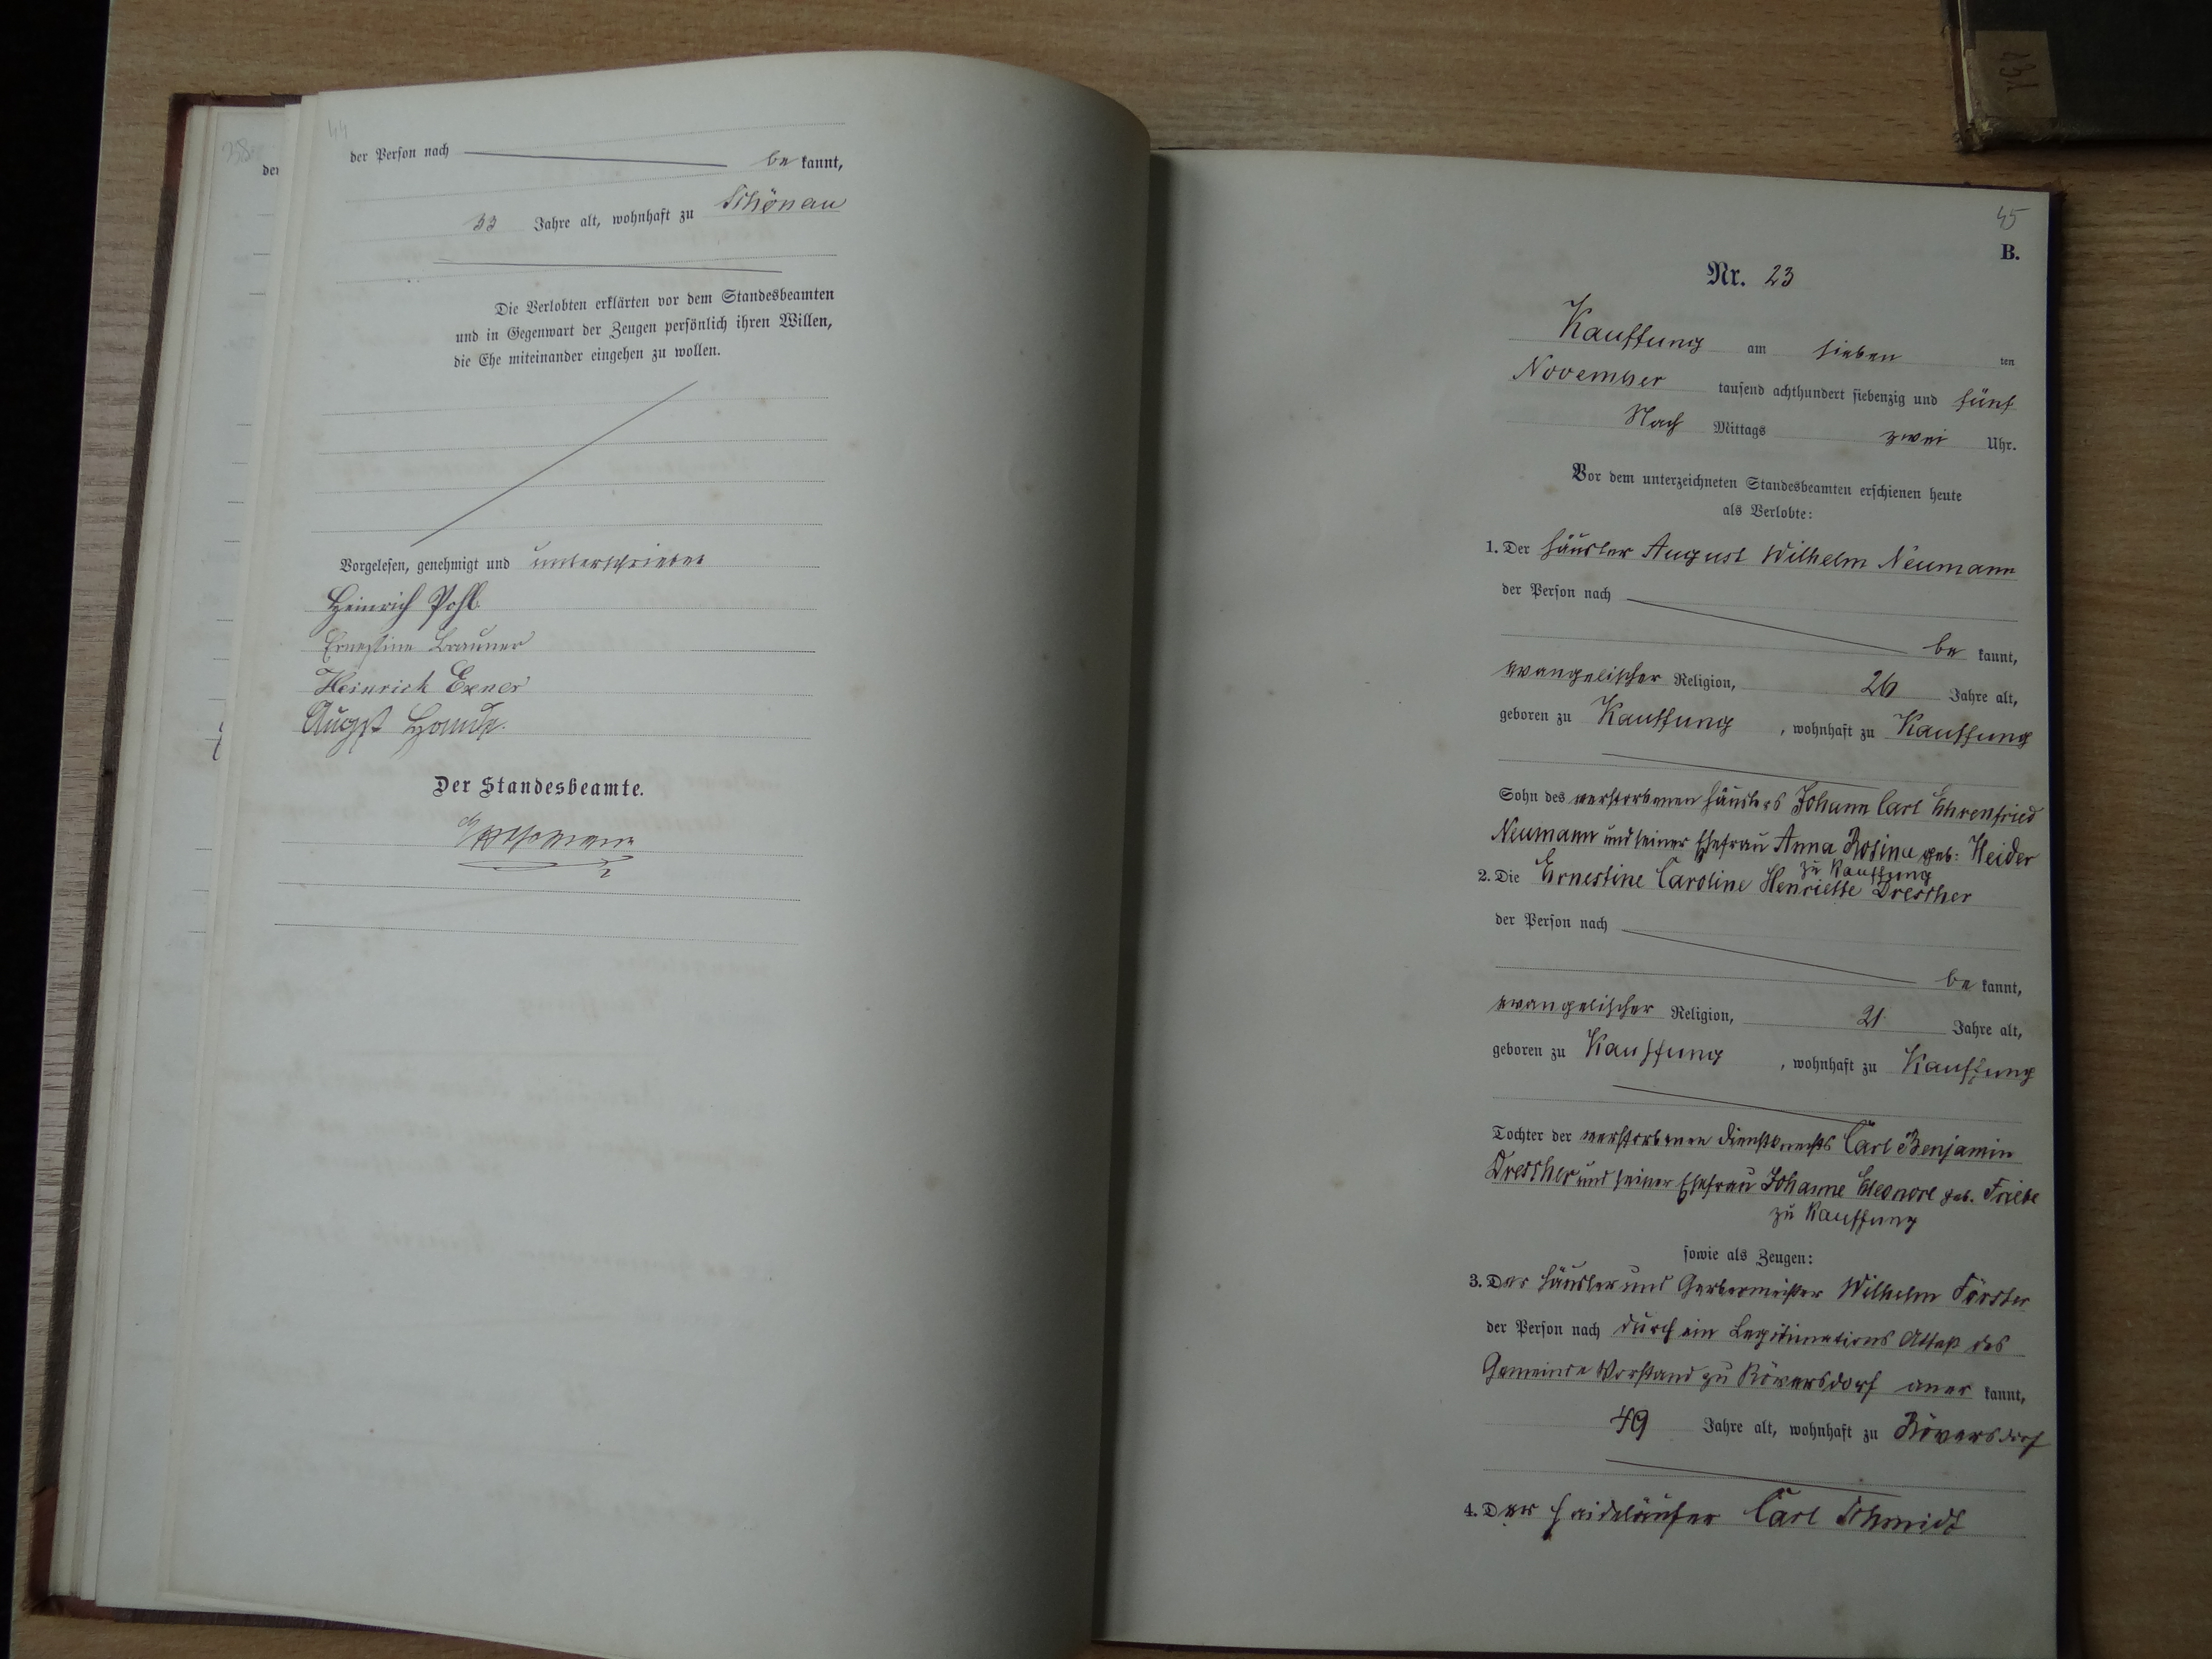 44
der Person nach be kannt,
33 Jahre alt, wohnhaft zu Schönau
Die Verlobten erklärten vor dem Standesbeamten
und in Gegenwart der Zeugen persönlich ihren Willen,
die Ehe miteinander eingehen zu wollen.
Vorgelesen, genehmigt und unterschrieben
Heinrich Pohl
Ernestine Brauner
Heinrich Exner
August
Der Standesbeamte.
45
B.
Nr. 23
Kauffung am sieben ten
November tausend achthundert siebenzig und fünf
Nach Mittags zwei Uhr.
Vor dem unterzeichneten Standesbeamten erschienen heute
als Verlobte:
1. Der Häusler August Wilhelm Neumann
der Person nach
be kannt,
evangelischer Religion, 26 Jahre alt,
geboren zu Kauffung, wohnhaft zu Kauffung
Sohn des verstorbenen Häuslers Johann Carl Ehrenfried
Neumann und seiner Ehefrau Anna Rosina geb: Heider
zu Kauffung
2. Die Ernestine Caroline Henriette Drescher
der Person nach
be kannt,
evangelischer Religion, 21 Jahre alt,
geboren zu Kauffung, wohnhaft zu Kauffung
Tochter der verstorbenen Dienstknechts Carl Benjamin
Drescher und seiner Ehefrau Johanne Eleonore geb. Friebe
zu Kauffung
sowie als Zeugen:
3. Der Häusler und Gerbermeister Wilhelm Förster
der Person nach durch ein Legitimations Attest des
Gemeinde Vorstand zu Röversdorf aner kannt,
49 Jahre alt, wohnhaft zu Röversdorf
4. Der Haideläufer Carl Schmidt